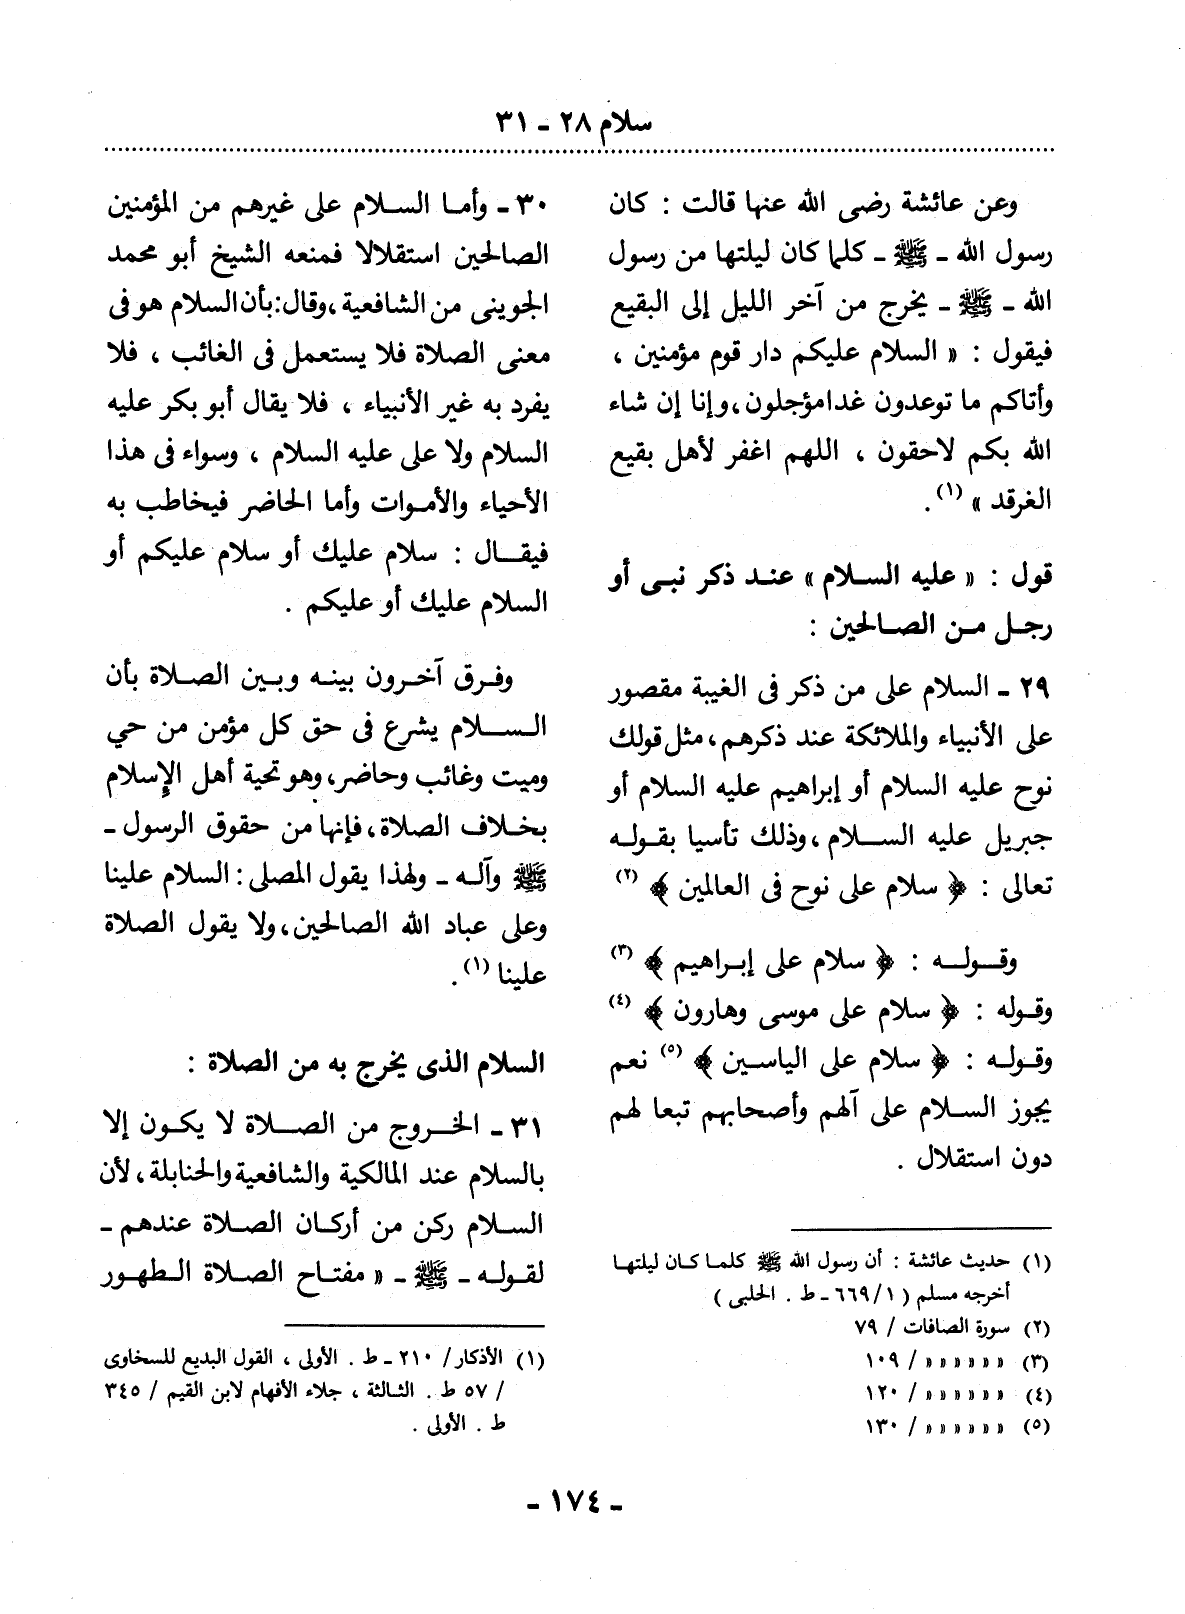 سلام ٢٨ - ٣١
وعن عائشة رضى الله عنها قالت : كان
رسول الله - ﷺ - كلما كان ليلتها من رسول
الله - ﷺ - يخرج من آخر الليل إلى البقيع
فيقول : « السلام عليكم دار قوم مؤمنين ،
وأتاكم ما توعدون غدا مؤجلون، وإنا إن شاء
الله بكم لاحقون ، اللهم اغفر لأهل بقيع
الغرقد » (١) .
قول : « عليه السلام » عند ذكر نبى أو
رجل من الصالحين :
٢٩ - السلام على من ذكر فى الغيبة مقصور
على الأنبياء والملائكة عند ذكرهم، مثل قولك
نوح عليه السلام أو إبراهيم عليه السلام أو
جبريل عليه السلام ، وذلك تأسيا بقوله
تعالى : ﴿ سلام على نوح فى العالمين ﴾ (٢)
وقوله : ﴿ سلام على إبراهيم ﴾ (٣)
وقوله : ﴿ سلام على موسى وهارون ﴾ (٤)
وقوله : ﴿ سلام على الياسين ﴾ (٥) نعم
يجوز السلام على آلهم وأصحابهم تبعا لهم
دون استقلال .
(١) حديث عائشة : أن رسول الله ﷺ كلما كان ليلتها
أخرجه مسلم ( ١/ ٦٦٩ - ط . الحلبى )
(٢) سورة الصافات / ٧٩
(٣) » » » » » » / ١٠٩
(٤) » » » » » » / ١٢٠
(٥) » » » » » » / ١٣٠
٣٠ - وأما السلام على غيرهم من المؤمنين
الصالحين استقلالا فمنعه الشيخ أبو محمد
الجوينى من الشافعية ، وقال: بأن السلام هو فى
معنى الصلاة فلا يستعمل فى الغائب ، فلا
يفرد به غير الأنبياء ، فلا يقال أبو بكر عليه
السلام ولا على عليه السلام ، وسواء فى هذا
الأحياء والأموات وأما الحاضر فيخاطب به
فيقال : سلام عليك أو سلام عليكم أو
السلام عليك أو عليكم .
وفرق آخرون بينه وبين الصلاة بأن
السلام يشرع فى حق كل مؤمن من حي
وميت وغائب وحاضر، وهو تحية أهل الإسلام
بخلاف الصلاة، فإنها من حقوق الرسول -
ﷺ وآله - ولهذا يقول المصلى : السلام علينا
وعلى عباد الله الصالحين، ولا يقول الصلاة
علينا (١) .
السلام الذى يخرج به من الصلاة :
٣١ - الخروج من الصلاة لا يكون إلا
بالسلام عند المالكية والشافعية والحنابلة ، لأن
السلام ركن من أركان الصلاة عندهم -
لقوله - ﷺ - « مفتاح الصلاة الطهور
(١) الأذكار / ٢١٠ - ط . الأولى ، القول البديع للسخاوى
/ ٥٧ ط . الثالثة ، جلاء الأفهام لابن القيم / ٣٤٥
ط . الأولى .
- ١٧٤ -